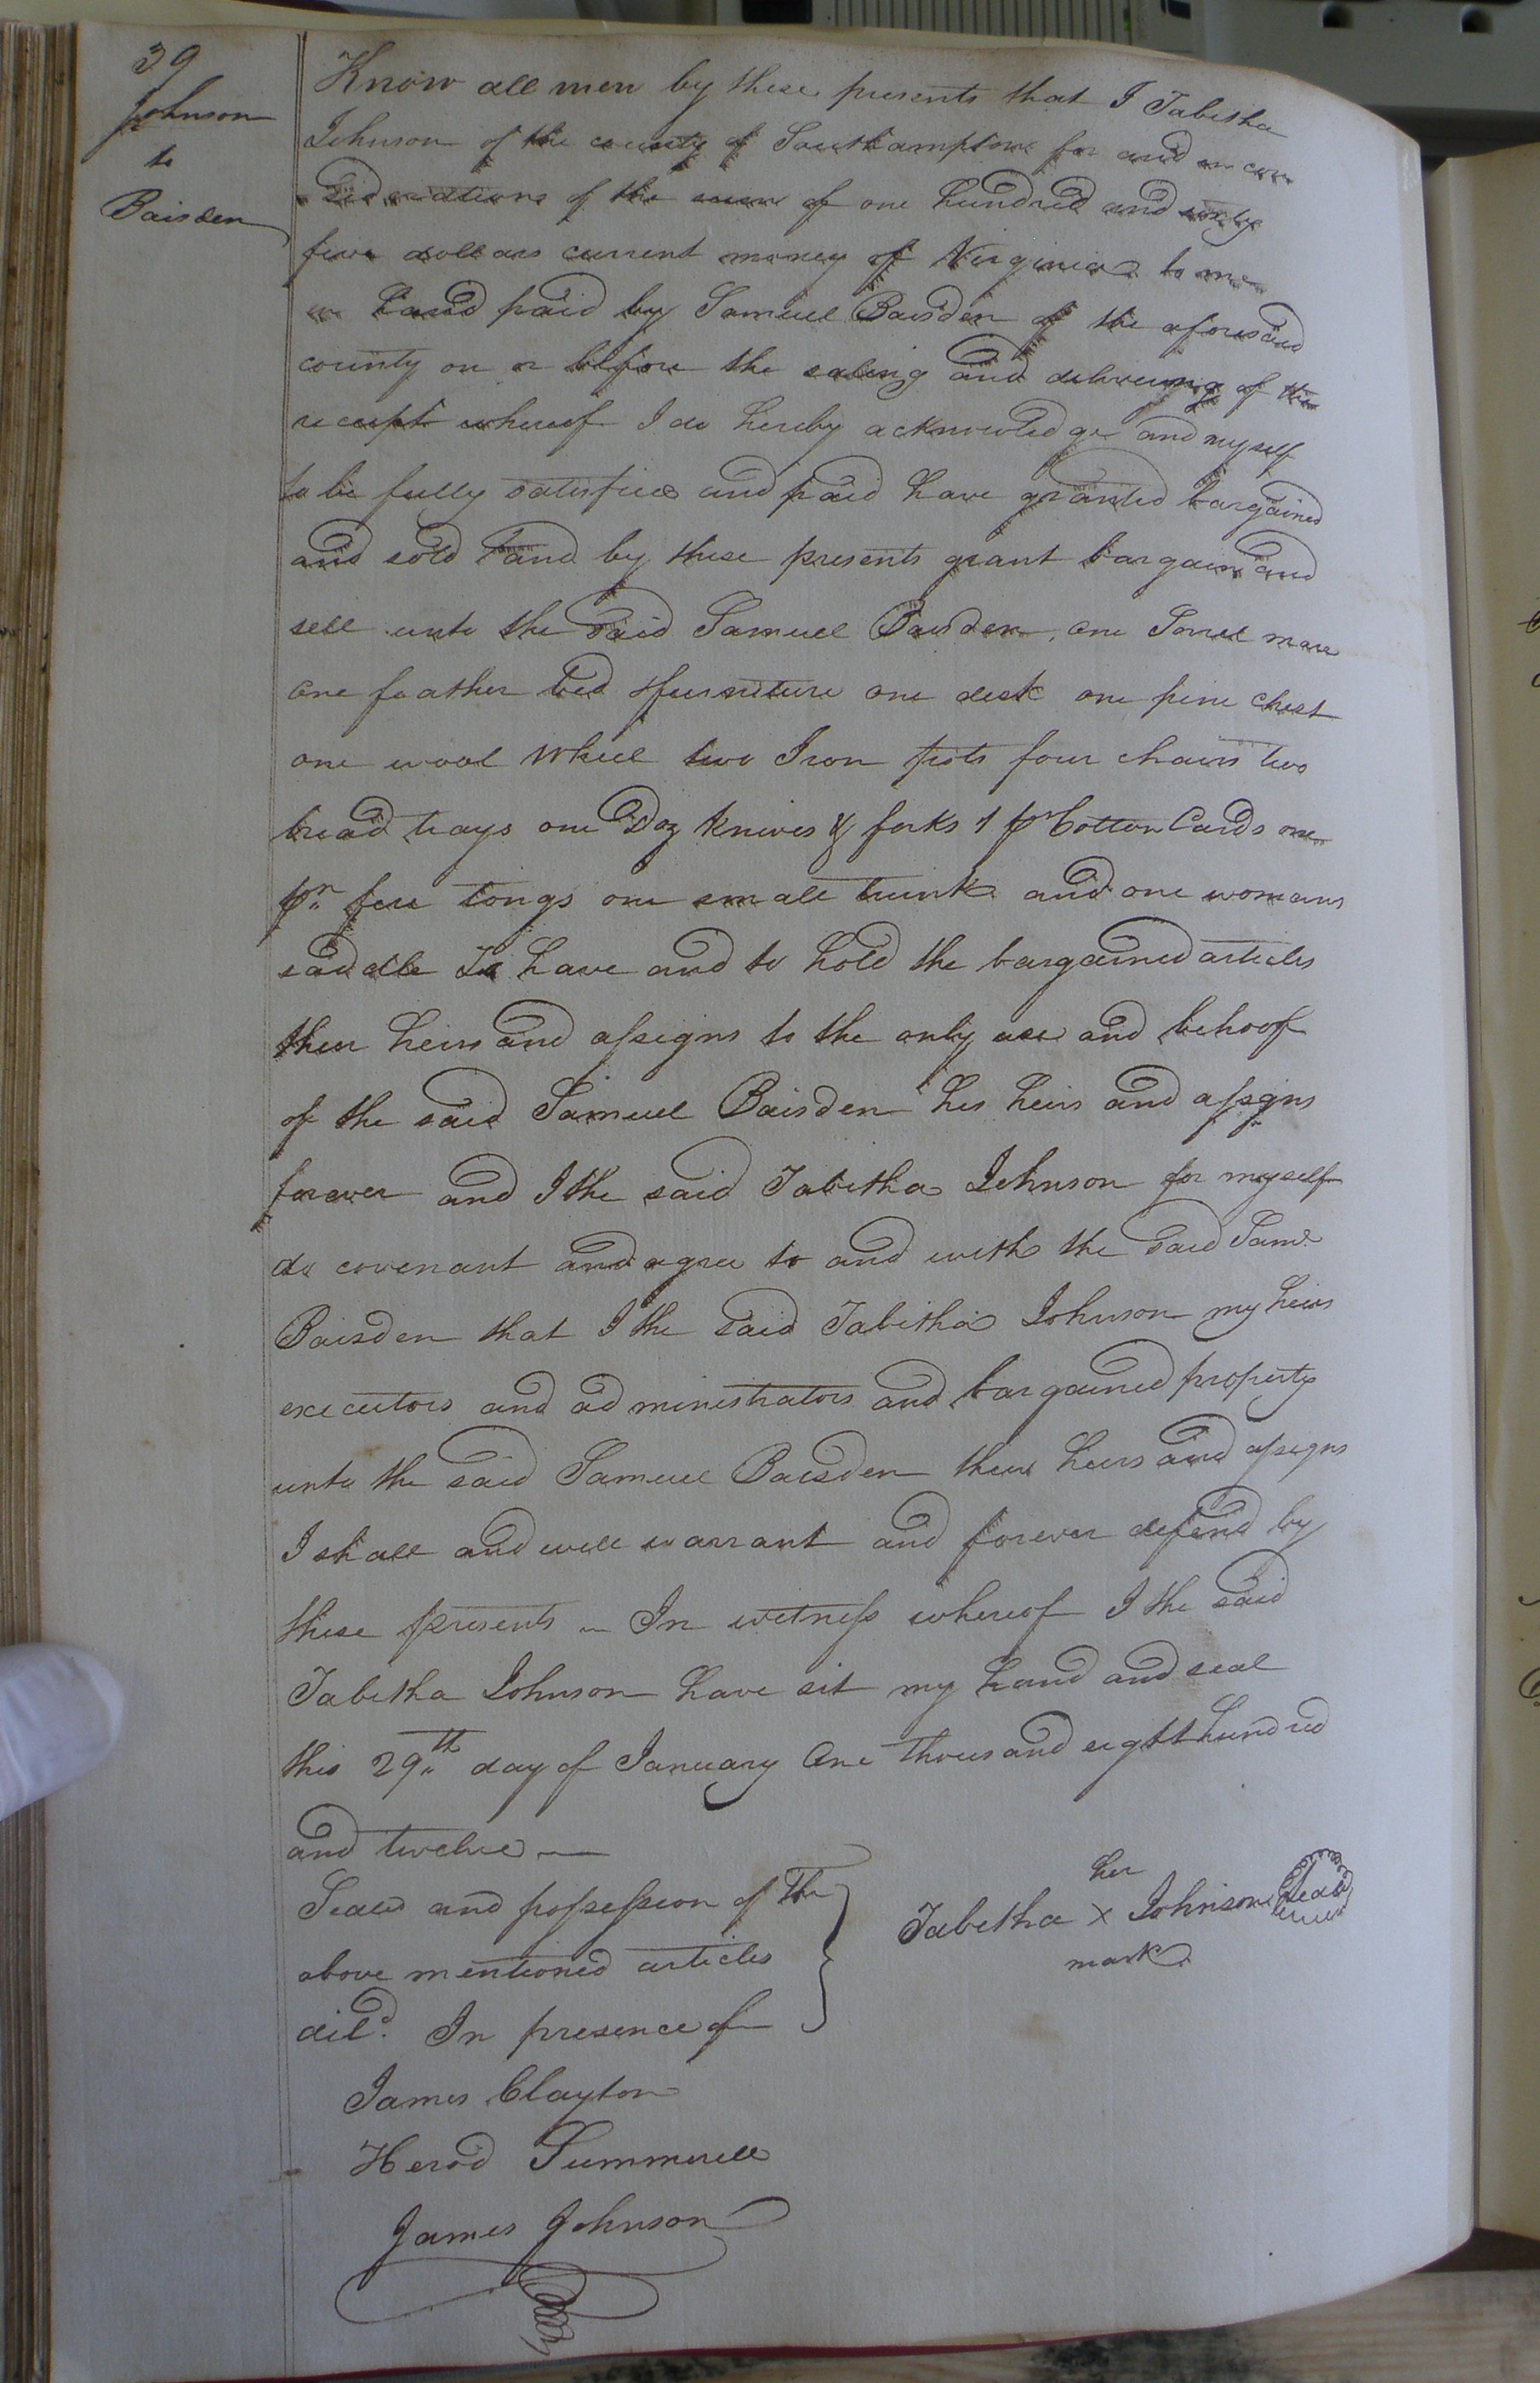 39
Johnson
to
Baisden
Know all men by these presents that I Tabitha
Johnson of the county of Southampton for and in con
siderations of the sum of one hundred and sixty
five dollars current money of Virginia to me
in hand paid by Samuel Baisden of the aforesaid
county on or before the saling and delivering of this
receipt whereof I do hereby acknowledge and myself
to be fully satisfied and paid have granted bargained
and sold and by these presents grant bargain and
sell unto the said Samuel Baisden, one Sorrel mare
one feather bed & furniture one desk one pine chest
one wool wheel two Iron pots four chairs two
bread trays one Doz knives & forks 1 pr Cotton Cards one
pr fire tongs one small trunk and one womans
saddle To have and to hold the bargained articles
their heirs and assigns to the only use and behoof
of the said Samuel Baisden his heirs and assigns
forever and I the said Tabitha Johnson for myself
do covenant and agree to and with the said Saml
Baisden that I the said Tabitha Johnson my heirs
executors and administrators and bargained property
unto the said Samuel Baisden their heirs and assigns
I shall and will warrant and forever defend by
these presents - In witness whereof I the said
Tabitha Johnson have sit my hand and seal
this 29th day of January One thousand eight hundred
and twelve
Seald and possession of the
above mentioned articles
deld. In presence of
her
Tabitha x Johnson Seal
mark
James Clayton
Herod Summerell
James Johnson